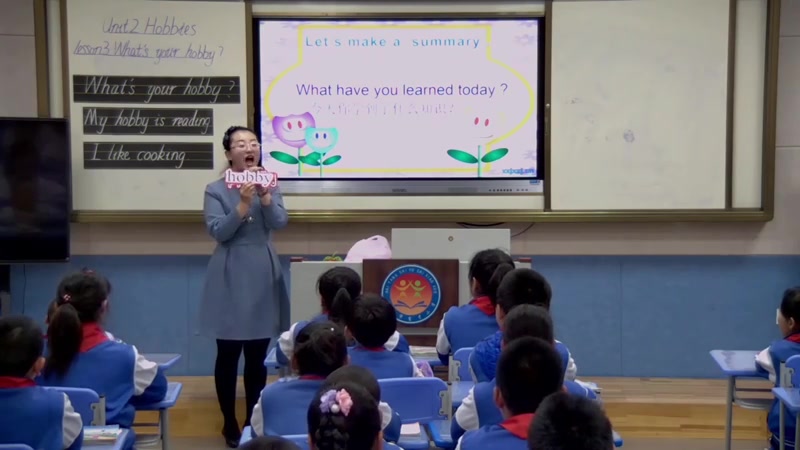 Unit 2 Hobbies
lesson 3 What's your hobby?
What's your hobby?
My hobby is reading
I like cooking
Let's make a summary
What have you learned today?
今天你学到了什么知识?
hobby